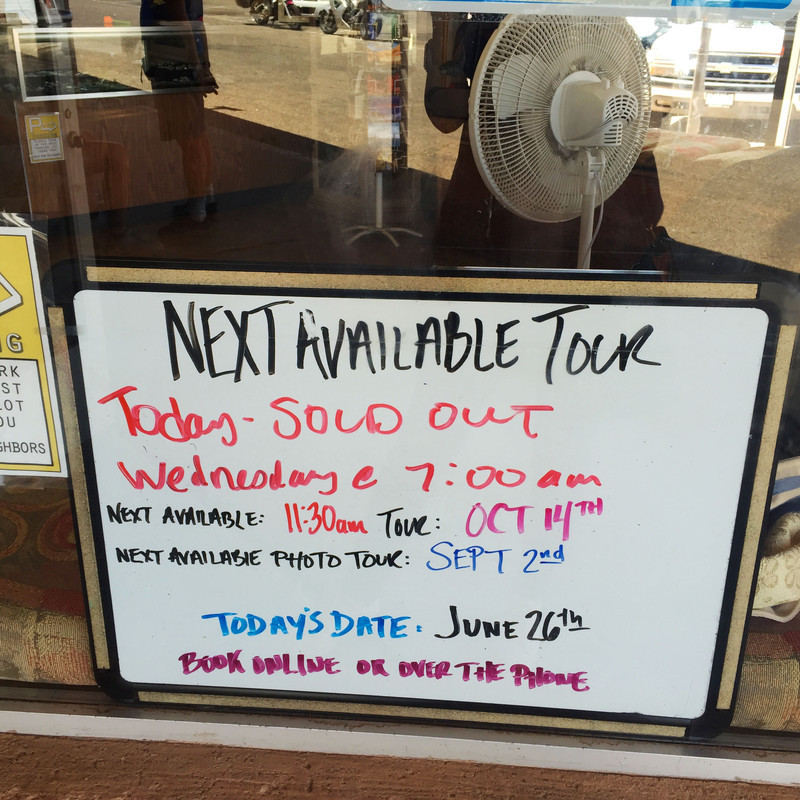 NEXT AVAILABLE TOUR
Today - SOLD OUT
Wednesday @ 7:00 am
NEXT AVAILABLE: 11:30am TOUR: OCT 14TH
NEXT AVAILABLE PHOTO TOUR: SEPT 2nd
TODAY'S DATE: JUNE 26th
BOOK ONLINE OR OVER THE PHONE
G
RK
ST
LOT
OU
GHBORS